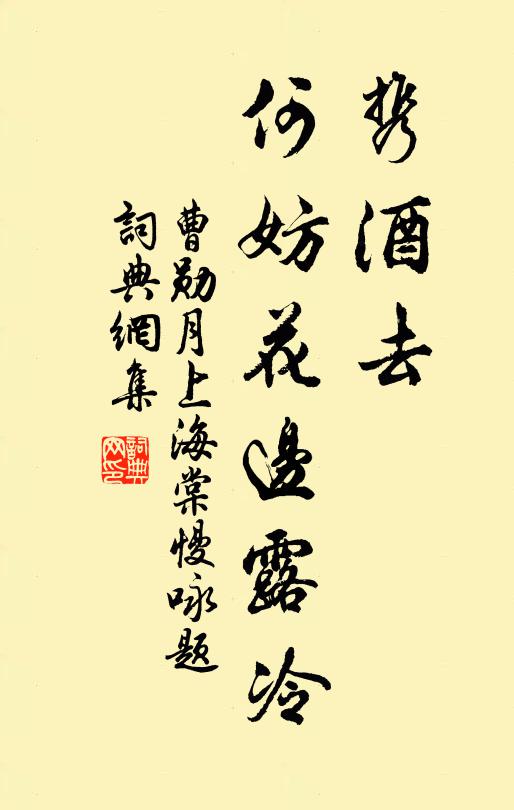 携酒去
何妨花邊露冷
曹勛月上海棠慢咏題
詞典網集
詞典
网印